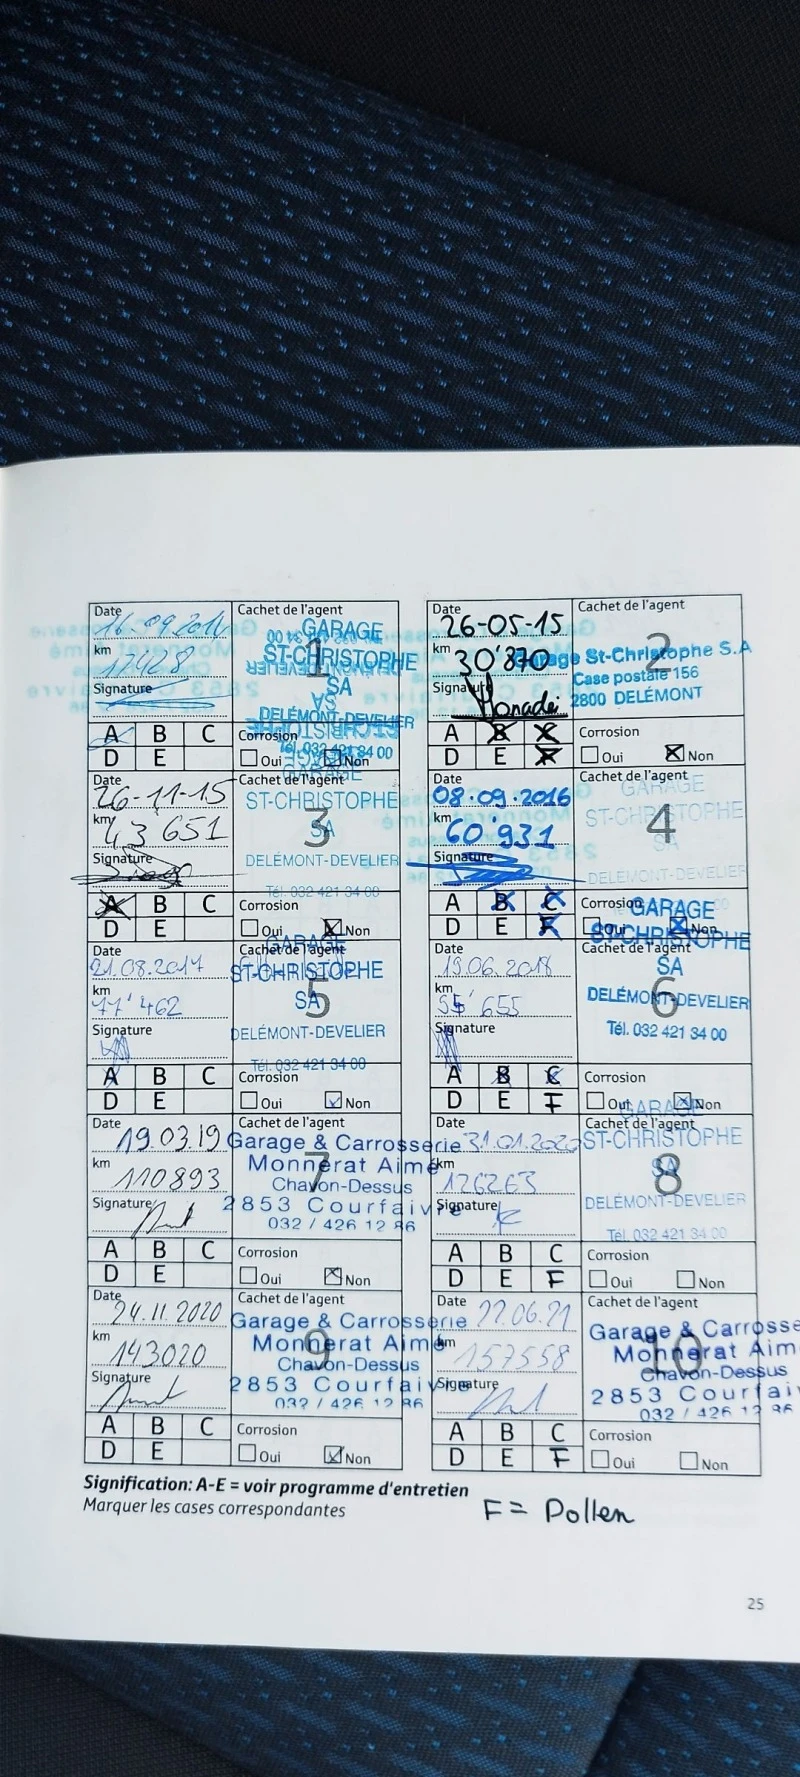 Date
16.09.2014
km
17428
Signature
Cachet de l'agent
1
GARAGE
ST-CHRISTOPHE
SA
DELÉMONT-DEVELIER
Tél. 032 421 34 00
A B C
D E
Corrosion
Oui Non
Date
26-05-15
km
30'870
Signature
Cachet de l'agent
2
Garage St-Christophe S.A
Case postale 156
2800 DELÉMONT
A B C
D E F
Corrosion
Oui Non
Date
26-11-15
km
43 651
Signature
Cachet de l'agent
3
GARAGE
ST-CHRISTOPHE
SA
DELÉMONT-DEVELIER
Tél. 032 421 34 00
A B C
D E
Corrosion
Oui Non
Date
08.09.2016
km
60'931
Signature
Cachet de l'agent
4
GARAGE
ST-CHRISTOPHE
SA
DELÉMONT-DEVELIER
A B C
D E F
Corrosion
Oui Non
Date
21.08.2017
km
77'462
Signature
Cachet de l'agent
5
GARAGE
ST-CHRISTOPHE
SA
DELÉMONT-DEVELIER
Tél. 032 421 34 00
A B C
D E
Corrosion
Oui Non
Date
19.06.2018
km
655
Signature
Cachet de l'agent
6
GARAGE
ST-CHRISTOPHE
SA
DELÉMONT-DEVELIER
Tél. 032 421 34 00
A B C
D E F
Corrosion
Oui Non
Date
19.03.19
km
110893
Signature
Cachet de l'agent
7
Garage & Carrosserie
Monnerat Aimé
Chavon-Dessus
2853 Courfaivre
032 / 426 12 86
A B C
D E
Corrosion
Oui Non
Date
31.01.2020
km
126263
Signature
Cachet de l'agent
8
GARAGE
ST-CHRISTOPHE
SA
DELÉMONT-DEVELIER
Tél. 032 421 34 00
A B C
D E F
Corrosion
Oui Non
Date
24.11.2020
km
143020
Signature
Cachet de l'agent
9
Garage & Carrosserie
Monnerat Aimé
Chavon-Dessus
2853 Courfaivre
032 / 426 12 86
A B C
D E
Corrosion
Oui Non
Date
22.06.21
km
157558
Signature
Cachet de l'agent
10
Garage & Carrosse
Monnerat Aim
Chavon-Dessus
2853 Courfai
032 / 426 12 86
A B C
D E F
Corrosion
Oui Non
Signification: A-E = voir programme d'entretien
Marquer les cases correspondantes
F = Pollen
25